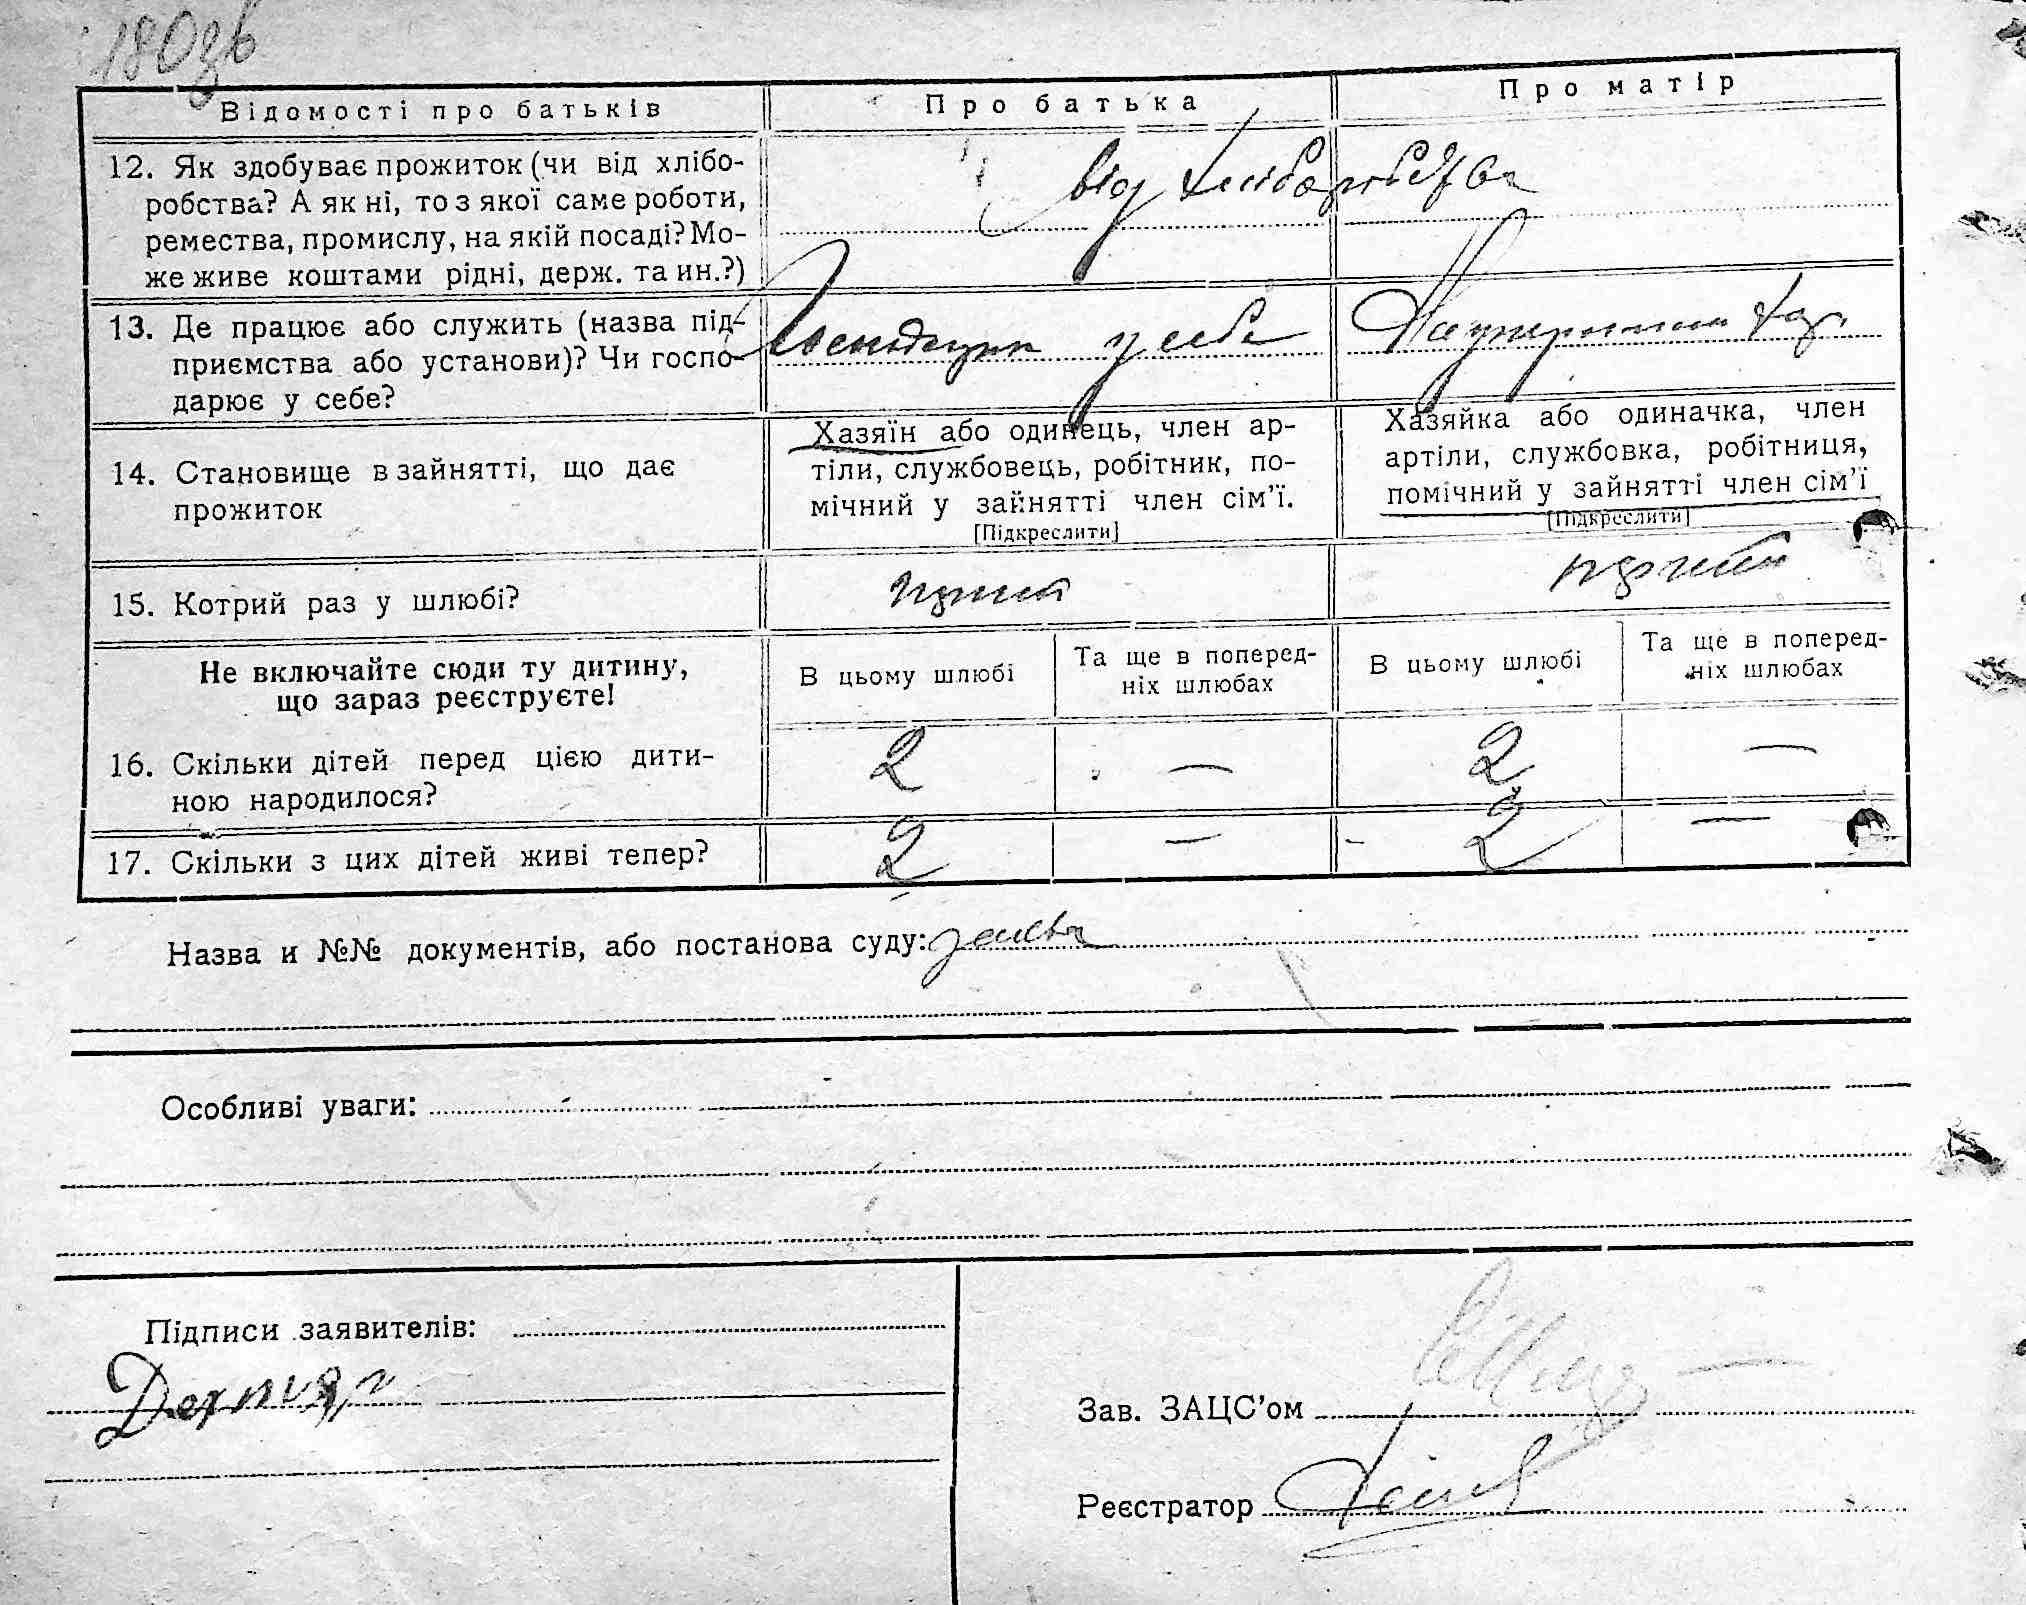 180зв
Відомості про батьків
Про батька
Про матір
12. Як здобуває прожиток (чи від хлібо-
робства? А як ні, то з якої саме роботи,
ремества, промислу, на якій посаді? Мо-
же живе коштами рідні, держ. та ин.?)
від хліборобства
13. Де працює або служить (назва під-
приємства або установи)? Чи госпо-
дарює у себе?
у себе
14. Становище в зайнятті, що дає
прожиток
Хазяїн або одинець, член ар-
тіли, службовець, робітник, по-
мічний у зайнятті член сім’ї.
[Підкреслити]
Хазяйка або одиначка, член
артіли, службовка, робітниця,
помічний у зайнятті член сім’ї
[Підкреслити]
15. Котрий раз у шлюбі?
Не включайте сюди ту дитину,
що зараз реєструєте!
В цьому шлюбі
Та ще в поперед-
ніх шлюбах
В цьому шлюбі
Та ще в поперед-
ніх шлюбах
16. Скільки дітей перед цією дити-
ною народилося?
2 — 2 —
17. Скільки з цих дітей живі тепер?
2 — 2 —
Назва и №№ документів, або постанова суду:
Особливі уваги:
Підписи заявителів:
Зав. ЗАЦС’ом
Реєстратор